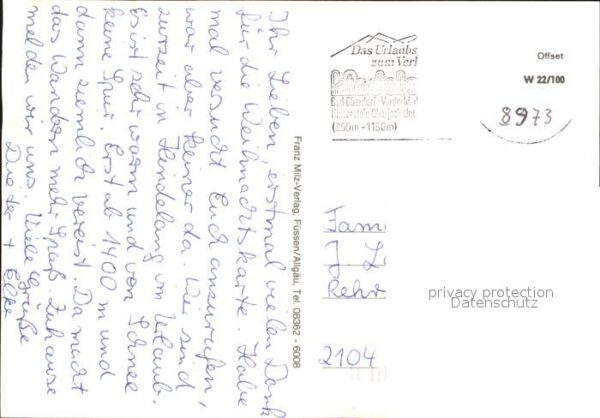 Ihr Lieben, erstmal vielen Dank
für die Weihnachtskarte. Habe
mal versucht Euch anzurufen,
war aber keiner da. Wir sind
zurzeit in Hindelang im Urlaub.
Es ist sehr warm und von Schnee
keine Spur. Erst ab 1400 m und
dann ziemlich vereist. Da macht
das Wandern mehr Spaß. Zuhause
melden wir uns. Viele Grüße
Dieter + Elke
Franz Milz-Verlag, Füssen/Allgäu, Tel. 08362 - 6008
Das Urlaubs
zum Verl
Bad Oberdorf
(850m - 1150m)
Offset
W 22/100
8973
Fam
J. L
Rehr
2104
privacy protection
Datenschutz